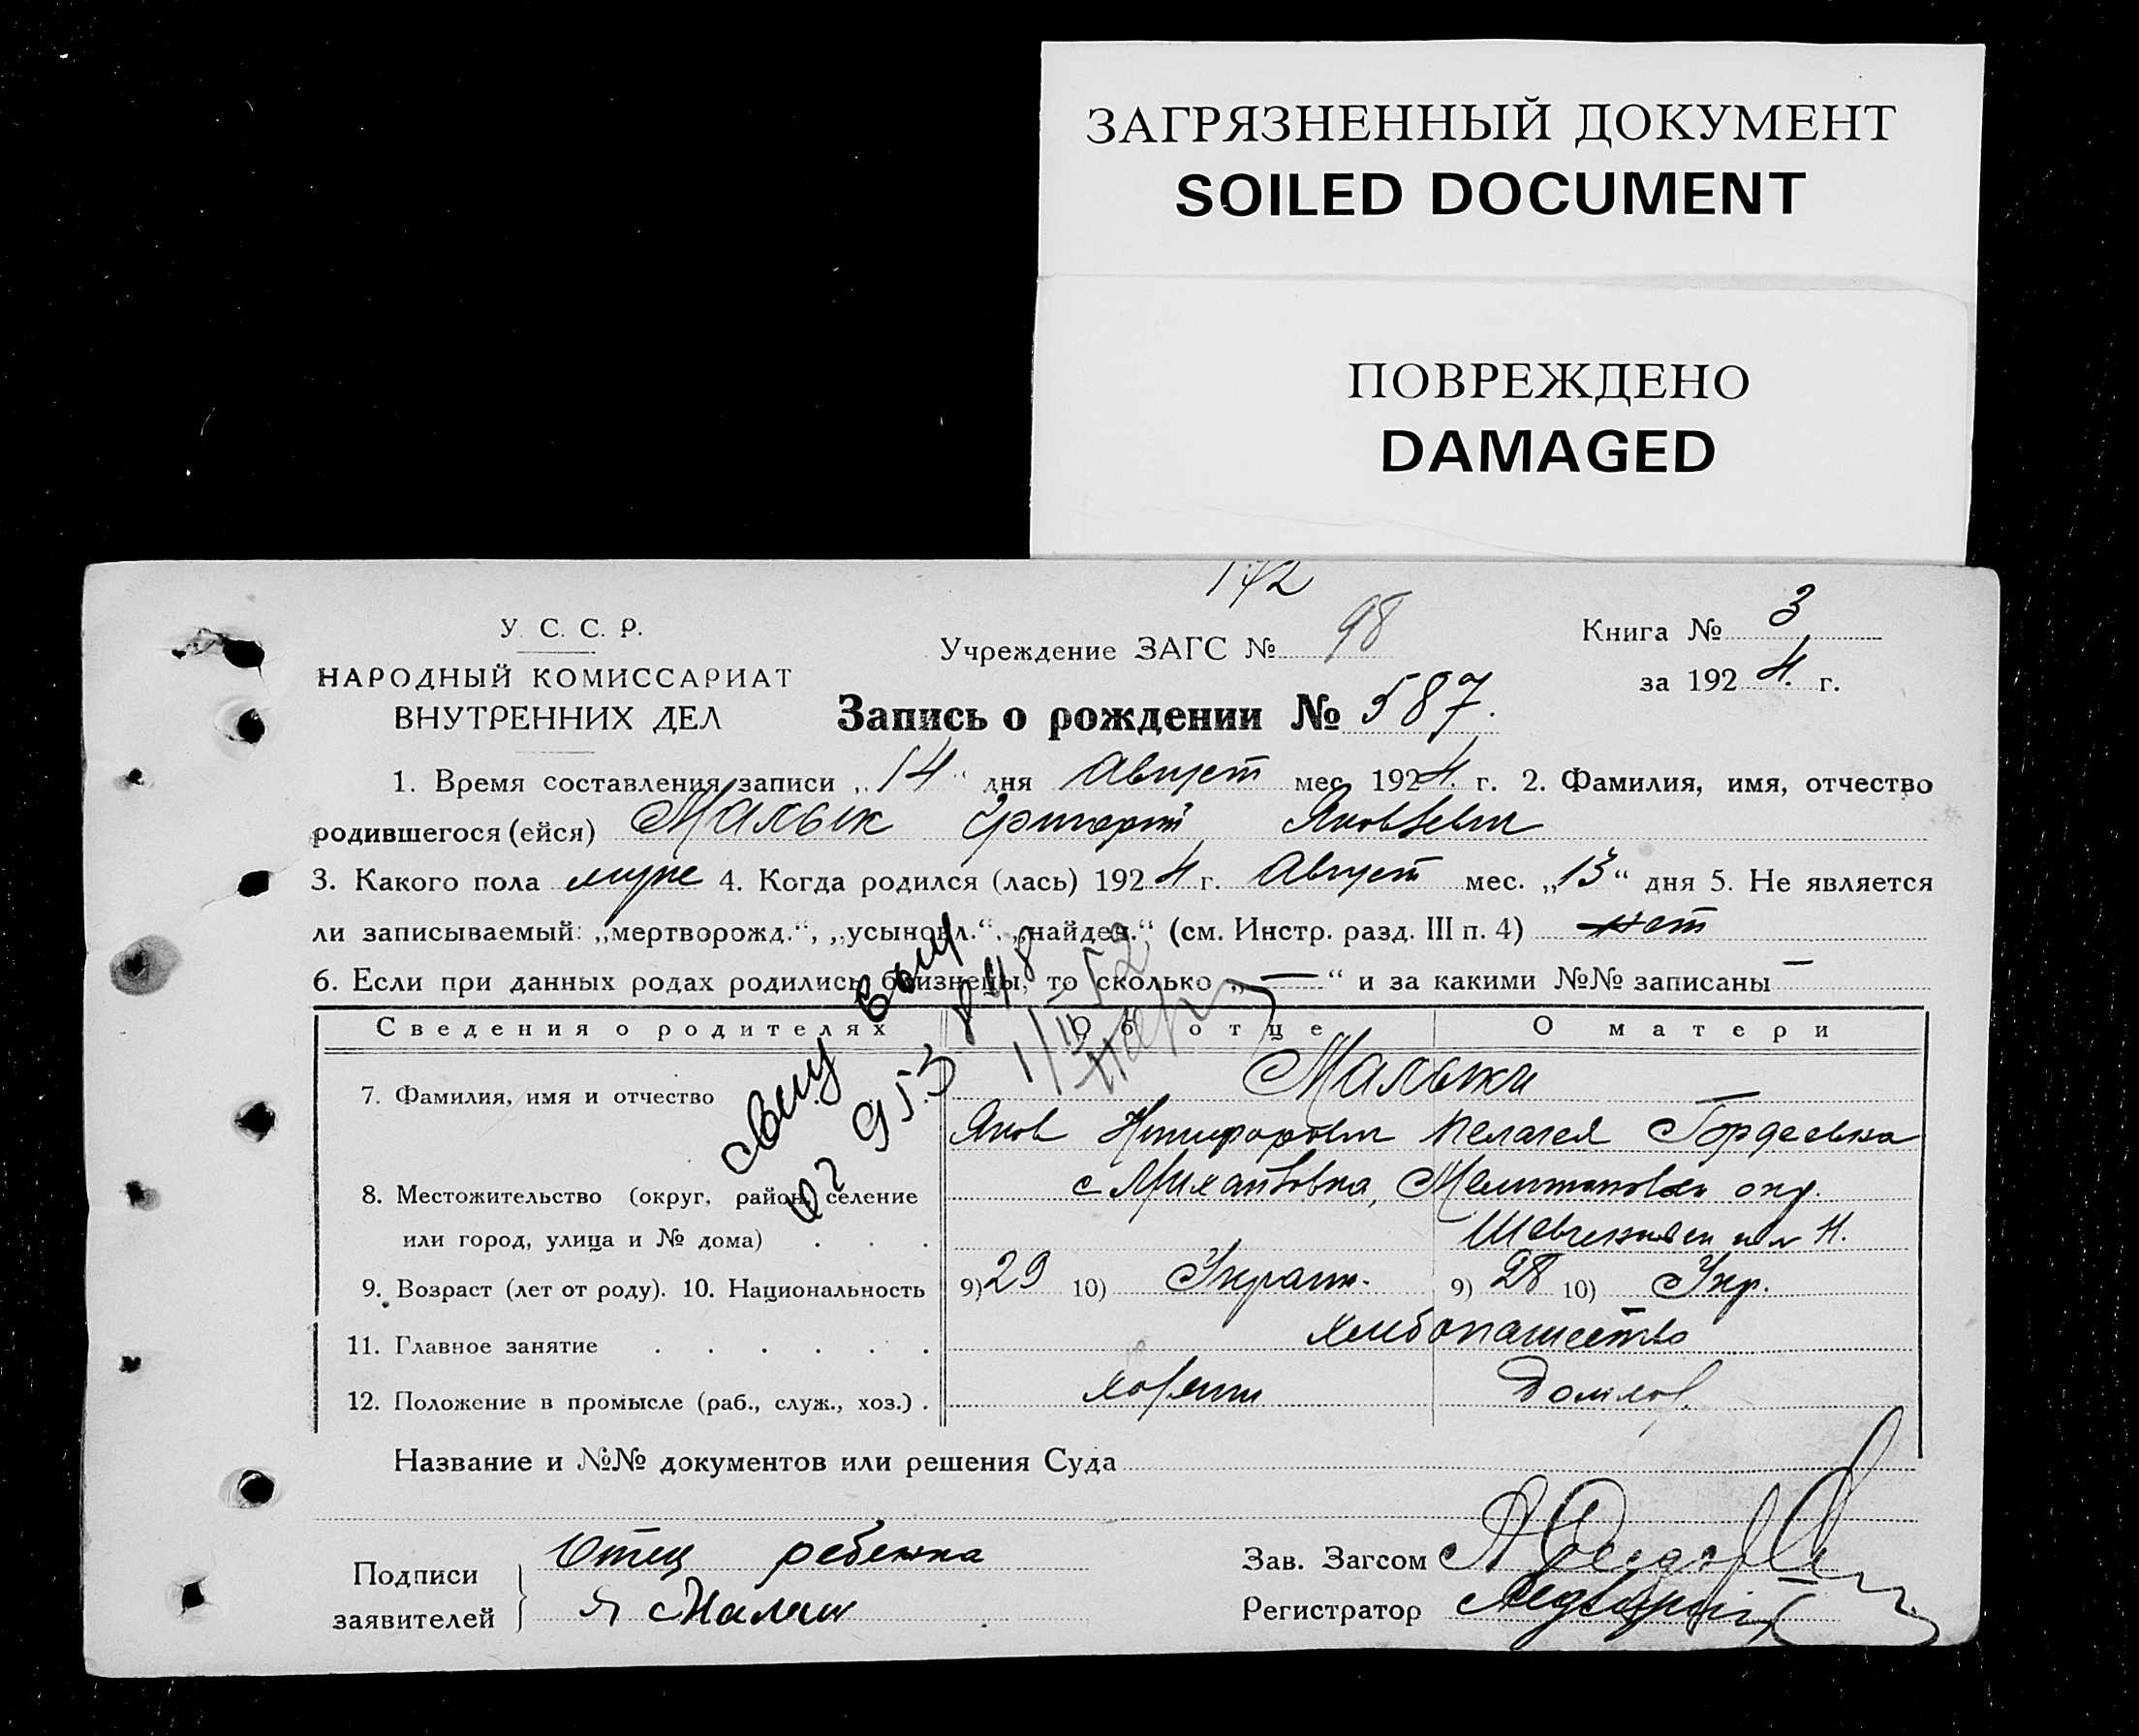 ЗАГРЯЗНЕННЫЙ ДОКУМЕНТ
SOILED DOCUMENT
ПОВРЕЖДЕНО
DAMAGED
172
У. С. С. Р.
НАРОДНЫЙ КОМИССАРИАТ
ВНУТРЕННИХ ДЕЛ
Учреждение ЗАГС № 98
Книга № 3
за 1924 г.
Запись о рождении № 587.
1. Время составления записи „14“ дня Август мес. 1924 г. 2. Фамилия, имя, отчество
родившегося (ейся) Малык Григорий Яковлевич
3. Какого пола муже 4. Когда родился (лась) 1924 г. Август мес. „13“ дня 5. Не является
ли записываемый: „мертворожд.“, „усыновл.“, „найден.“ (см. Инстр. разд. III п. 4) нет
6. Если при данных родах родились близнецы, то сколько „—“ и за какими №№ записаны —
Сведения о родителях Об отце О матери
7. Фамилия, имя и отчество Малыки
Яков Никифорович Пелагея Гордеевна
8. Местожительство (округ, район, селение с Михайловка, Мелитопольск окр.
или город, улица и № дома) . . . Шевченковск
9. Возраст (лет от роду). 10. Национальность 9) 29 10) Украин. 9) 28 10) Укр.
11. Главное занятие . . . . . . хлебопашество
12. Положение в промысле (раб., служ., хоз.) . хозяин домхоз.
Название и №№ документов или решения Суда
Подписи заявителей
Отец ребенка
Я Малык
Зав. Загсом
Регистратор